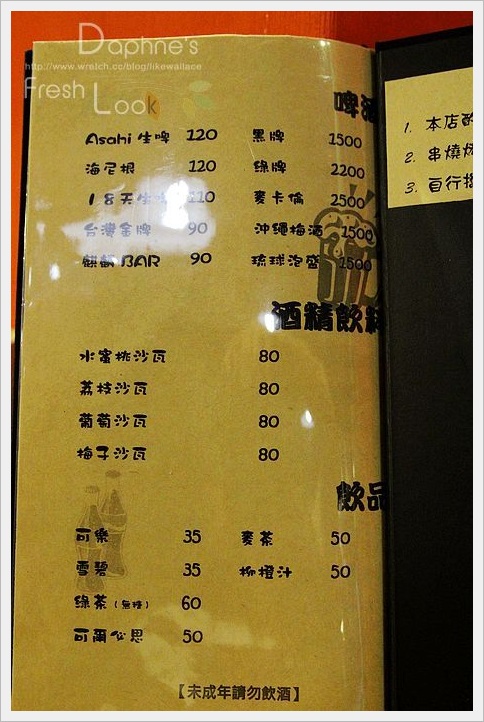 Daphne's
http://www.wretch.cc/blog/likewallace
Fresh Look
啤酒
Asahi 生啤 120 黑牌 1500
海尼根 120 綠牌 2200
18天生啤 110 麥卡倫 2500
台灣金牌 90 沖繩梅酒 1500
麒麟 BAR 90 琉球泡盛 1500
酒精飲料
水蜜桃沙瓦 80
荔枝沙瓦 80
葡萄沙瓦 80
梅子沙瓦 80
飲品
可樂 35 麥茶 50
雪碧 35 柳橙汁 50
綠茶(無糖) 60
可爾必思 50
【未成年請勿飲酒】
1. 本店
2. 串燒
3. 自行